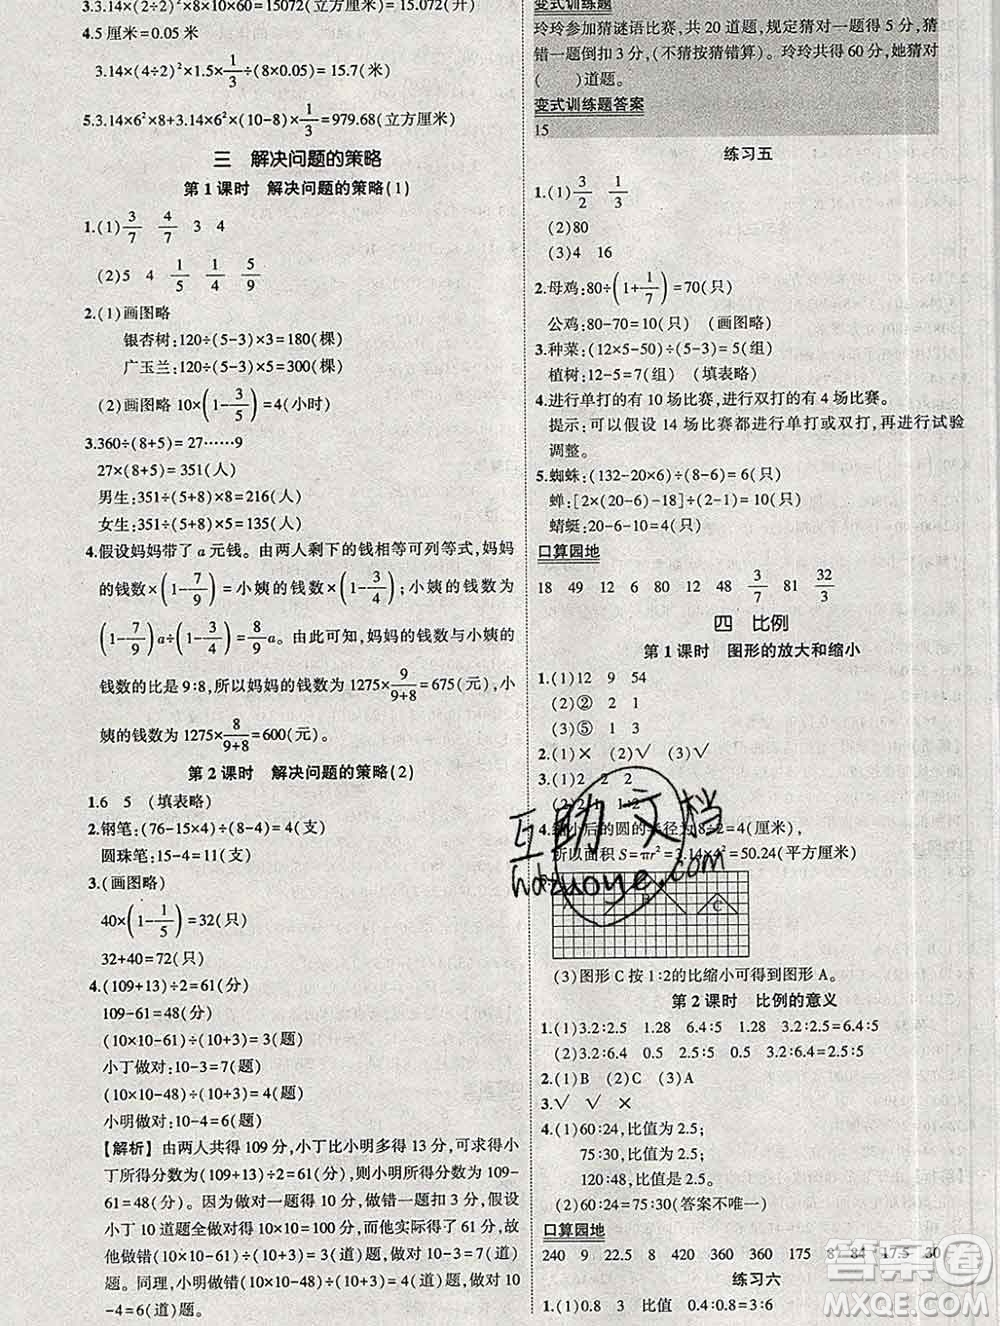 3.3.14×(20÷2)²×10×5=15072(立方厘米)=15.072(升)
4.5 厘米=0.05 米
3.14×(4÷2)²×1.5×1/3÷(8×0.05)=15.7(米)
5.3.14×6²×8+3.14×6²×(10-8)×1/3=979.68(立方厘米)
三 解决问题的策略
第 1 课时 解决问题的策略(1)
1.(1)3/7 4/7 3 4
(2)5 4 1/5 1/4 5/9
2.(1)画图略
银杏树:120÷(5-3)×3=180(棵)
广玉兰:120÷(5-3)×5=300(棵)
(2)画图略 10×(1-3/5)=4(小时)
3.360÷(8+5)=27……9
27×(8+5)=351(人)
男生:351÷(8+5)×8=216(人)
女生:351÷(8+5)×5=135(人)
4.假设妈妈带了 a 元钱。由两人剩下的钱相等可列等式,妈妈
的钱数×(1-7/9)=小姨的钱数×(1-3/4);小姨的钱数为
(1-7/9)a÷(1-3/4)=8/9a。由此可知,妈妈的钱数与小姨的
钱数的比是 9:8,所以妈妈的钱数为 1275×9/(9+8)=675(元),小
姨的钱数为 1275×8/(9+8)=600(元)。
第 2 课时 解决问题的策略(2)
1.6 5 (填表略)
2.钢笔:(76-15×4)÷(8-4)=4(支)
圆珠笔:15-4=11(支)
3.(画图略)
40×(1-1/5)=32(只)
32+40=72(只)
4.(109+13)÷2=61(分)
109-61=48(分)
(10×10-61)÷(10+3)=3(题)
小丁做对:10-3=7(题)
(10×10-48)÷(10+3)=4(题)
小明做对:10-4=6(题)
【解析】由两人共得 109 分,小丁比小明多得 13 分,可求得小
丁所得分数为(109+13)÷2=61(分),则小明所得分数为 109-
61=48(分)。因为做对一题得 10 分,做错一题扣 3 分,假设
小丁 10 道题全做对得 100 分,而他实际共得了 61 分,故他
做错(10×10-61)÷(10+3)=3(道)题,他做对 10-3=7(道)
题。同理,小明做错(10×10-48)÷(10+3)=4(道)题,做对 10
-4=6(道)题。
变式训练题
玲玲参加猜谜语比赛,共 20 道题,规定猜对一题得 5 分,猜
错一题倒扣 3 分,(不猜按猜错算)。玲玲共得 60 分,她猜对
( )道题。
变式训练题答案
15
练习五
1.(1)3/2 1/3
(2)80
(3)4 16
2.母鸡:80÷(1+1/7)=70(只)
公鸡:80-70=10(只) (画图略)
3.种菜:(12×5-50)÷(5-3)=5(组)
植树:12-5=7(组) (填表略)
4.进行单打的有 10 场比赛,进行双打的有 4 场比赛。
提示:可以假设 14 场比赛都进行单打或双打,再进行试验
调整。
5.蜘蛛:(132-20×6)÷(8-6)=6(只)
蝉:[2×(20-6)-18]÷(2-1)=10(只)
蜻蜓:20-6-10=4(只)
口算园地
18 49 12 6 80 12 48 3/7 81 32/3
四 比例
第 1 课时 图形的放大和缩小
1.(1)12 9 54
(2)② 2 1
(3)⑤ 1 3
2.(1)× (2)√ (3)√
3.(1)2 2 2
(2)2:1 1:2
4.缩小后的圆的半径为 8÷2=4(厘米)
所以面积 S=πr²=3.14×4²=50.24(平方厘米)
C
(3)图形 C 按 1:2的比缩小可得到图形 A。
第 2 课时 比例的意义
1.(1)3.2:2.5 1.28 6.4:5 1.28 3.2:2.5=6.4:5
(2)3.2:6.4 2.5:5 3.2:6.4=2.5:5
2.(1)B (2)C (3)A
3.√ √ ×
4.(1)60:24,比值为 2.5;
75:30,比值为 2.5;
120:48,比值是 2.5。
(2)60:24=75:30(答案不唯一)
口算园地
240 9 22.5 8 420 360 360 175 84 17.5 30
练习六
1.(1)0.8 3 比值 0.4:0.8=3:6
互助文档
hdzuoye.com
答案圈
MXQE.COM